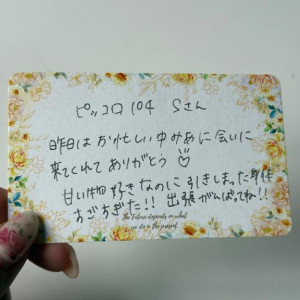 ピッコロ104 Sさん
昨日はお忙しい中みあに会いに
来てくれてありがとう♡
甘い物好きなのに引きしまった身体
すごすぎた!! 出張がんばってね!!
the Future depends on what
we do in the present